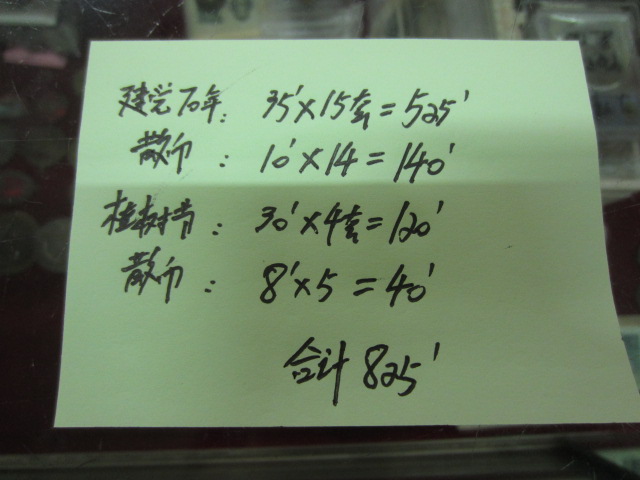 建党70年: 35'×15套=525'
散币: 10'×14=140'
植树节: 30'×4套=120'
散币: 8'×5=40'
合计 825'